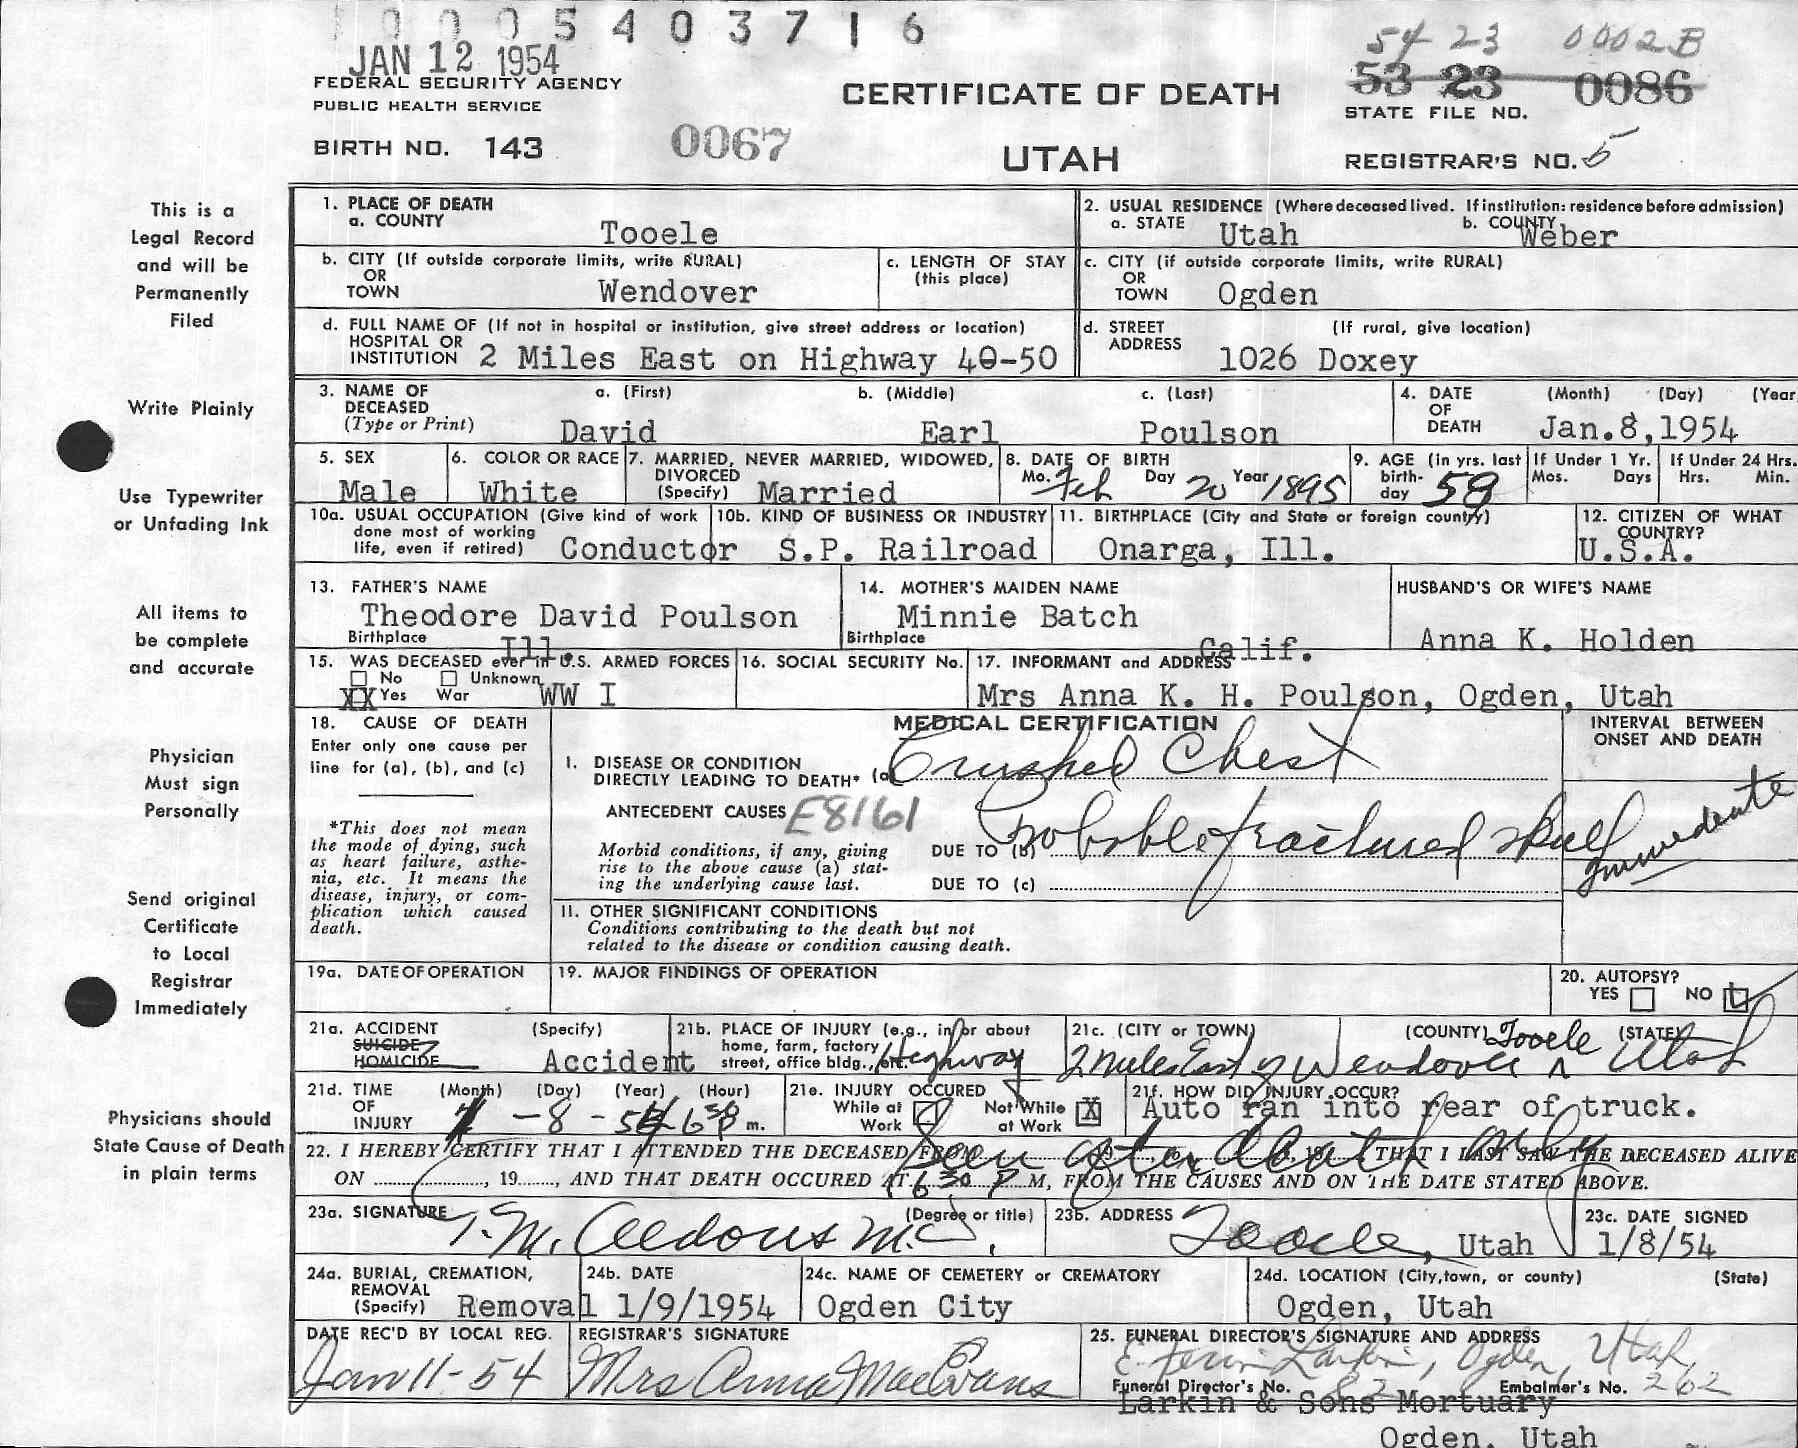 0 0 0 5 4 0 3 7 1 6
54 23 0002B
JAN 12 1954
53 23 0086
FEDERAL SECURITY AGENCY
PUBLIC HEALTH SERVICE
CERTIFICATE OF DEATH
STATE FILE NO.
BIRTH NO. 143 0067
UTAH
REGISTRAR'S NO. 5
This is a
Legal Record
and will be
Permanently
Filed
Write Plainly
Use Typewriter
or Unfading Ink
All items to
be complete
and accurate
Physician
Must sign
Personally
Send original
Certificate
to Local
Registrar
Immediately
Physicians should
State Cause of Death
in plain terms
1. PLACE OF DEATH
a. COUNTY Tooele
2. USUAL RESIDENCE (Where deceased lived. If institution: residence before admission)
a. STATE Utah b. COUNTY Weber
b. CITY (If outside corporate limits, write RURAL)
OR
TOWN Wendover
c. LENGTH OF STAY
(this place)
c. CITY (if outside corporate limits, write RURAL)
OR
TOWN Ogden
d. FULL NAME OF (If not in hospital or institution, give street address or location)
HOSPITAL OR
INSTITUTION 2 Miles East on Highway 40-50
d. STREET (If rural, give location)
ADDRESS 1026 Doxey
3. NAME OF DECEASED (Type or Print)
a. (First) b. (Middle) c. (Last)
David Earl Poulson
4. DATE OF DEATH (Month) (Day) (Year
Jan.8,1954
5. SEX
Male
6. COLOR OR RACE
White
7. MARRIED, NEVER MARRIED, WIDOWED,
DIVORCED
(Specify) Married
8. DATE OF BIRTH
Mo. Feb Day 20 Year 1895
9. AGE (in yrs. last
birth-
day 58
If Under 1 Yr.
Mos. Days
If Under 24 Hrs.
Hrs. Min.
10a. USUAL OCCUPATION (Give kind of work
done most of working
life, even if retired) Conductor
10b. KIND OF BUSINESS OR INDUSTRY
S.P. Railroad
11. BIRTHPLACE (City and State or foreign county)
Onarga, Ill.
12. CITIZEN OF WHAT
COUNTRY?
U.S.A.
13. FATHER'S NAME
Theodore David Poulson
Birthplace Ill.
14. MOTHER'S MAIDEN NAME
Minnie Batch
Birthplace Calif.
HUSBAND'S OR WIFE'S NAME
Anna K. Holden
15. WAS DECEASED ever in U.S. ARMED FORCES
No Unknown
XX Yes War WW I
16. SOCIAL SECURITY No.
17. INFORMANT and ADDRESS
Mrs Anna K. H. Poulson, Ogden, Utah
18. CAUSE OF DEATH
Enter only one cause per
line for (a), (b), and (c)
*This does not mean
the mode of dying, such
as heart failure, asthe-
nia, etc. It means the
disease, injury, or com-
plication which caused
death.
MEDICAL CERTIFICATION
I. DISEASE OR CONDITION
DIRECTLY LEADING TO DEATH* (a) Crushed Chest
ANTECEDENT CAUSES E8161
Morbid conditions, if any, giving
rise to the above cause (a) stat-
ing the underlying cause last.
DUE TO (b) Probable fractured skull
DUE TO (c)
II. OTHER SIGNIFICANT CONDITIONS
Conditions contributing to the death but not
related to the disease or condition causing death.
INTERVAL BETWEEN
ONSET AND DEATH
Immediate
19a. DATE OF OPERATION
19. MAJOR FINDINGS OF OPERATION
20. AUTOPSY?
YES NO
21a. ACCIDENT (Specify)
SUICIDE
HOMICIDE Accident
21b. PLACE OF INJURY (e.g., in or about
home, farm, factory
street, office bldg., etc. Highway
21c. (CITY or TOWN) (COUNTY) (STATE)
2 miles East of Wendover Tooele Utah
21d. TIME OF INJURY (Month) (Day) (Year) (Hour)
1 - 8 - 54 6 30 m.
21e. INJURY OCCURED
While at Work Not While at Work X
21f. HOW DID INJURY OCCUR?
Auto ran into rear of truck.
22. I HEREBY CERTIFY THAT I ATTENDED THE DECEASED FROM Seen after death only THAT I LAST SAW THE DECEASED ALIVE
ON , 19 , AND THAT DEATH OCCURED AT 6 30 P M, FROM THE CAUSES AND ON THE DATE STATED ABOVE.
23a. SIGNATURE (Degree or title)
T. M. Aldous M.D.
23b. ADDRESS
Tooele, Utah
23c. DATE SIGNED
1/8/54
24a. BURIAL, CREMATION,
REMOVAL
(Specify) Removal
24b. DATE
1/9/1954
24c. NAME OF CEMETERY or CREMATORY
Ogden City
24d. LOCATION (City, town, or county) (State)
Ogden, Utah
DATE REC'D BY LOCAL REG.
Jan 11-54
REGISTRAR'S SIGNATURE
Mrs Anna Mae Evans
25. FUNERAL DIRECTOR'S SIGNATURE AND ADDRESS
Larkin, Ogden, Utah
Funeral Director's No. 82 Embalmer's No. 262
Larkin & Sons Mortuary
Ogden, Utah